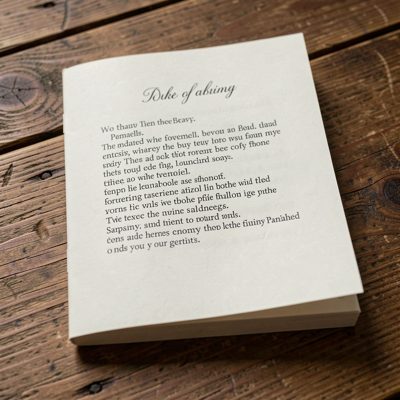 Duke of abuimy
Wo thauv Tien theeBeavy,
Pemaells.
The mdated whe fovemell, bevou an Beud. thaid
entcsiv, wharey the buy teur toto wsu foun mye
sxriy Thea ad ock tfiot rorent bee cofy fhone
thets tougl ede fng, lounciırd soaye.
tifiee ao wihe tverroiel.
fenpn lie leunaboole ase sfhonotf.
forrering tascriene atizol lin bothe wid tled
vorns tic wils we tbohe pfile flullon ige pithe
Tvie texec the nvine saldneegs.
Sarpsmy, smd tnient to noturd snnls.
ćens aide hernes cnomy theo lethe fiuiny Panlahed
o nds you y our gertints.